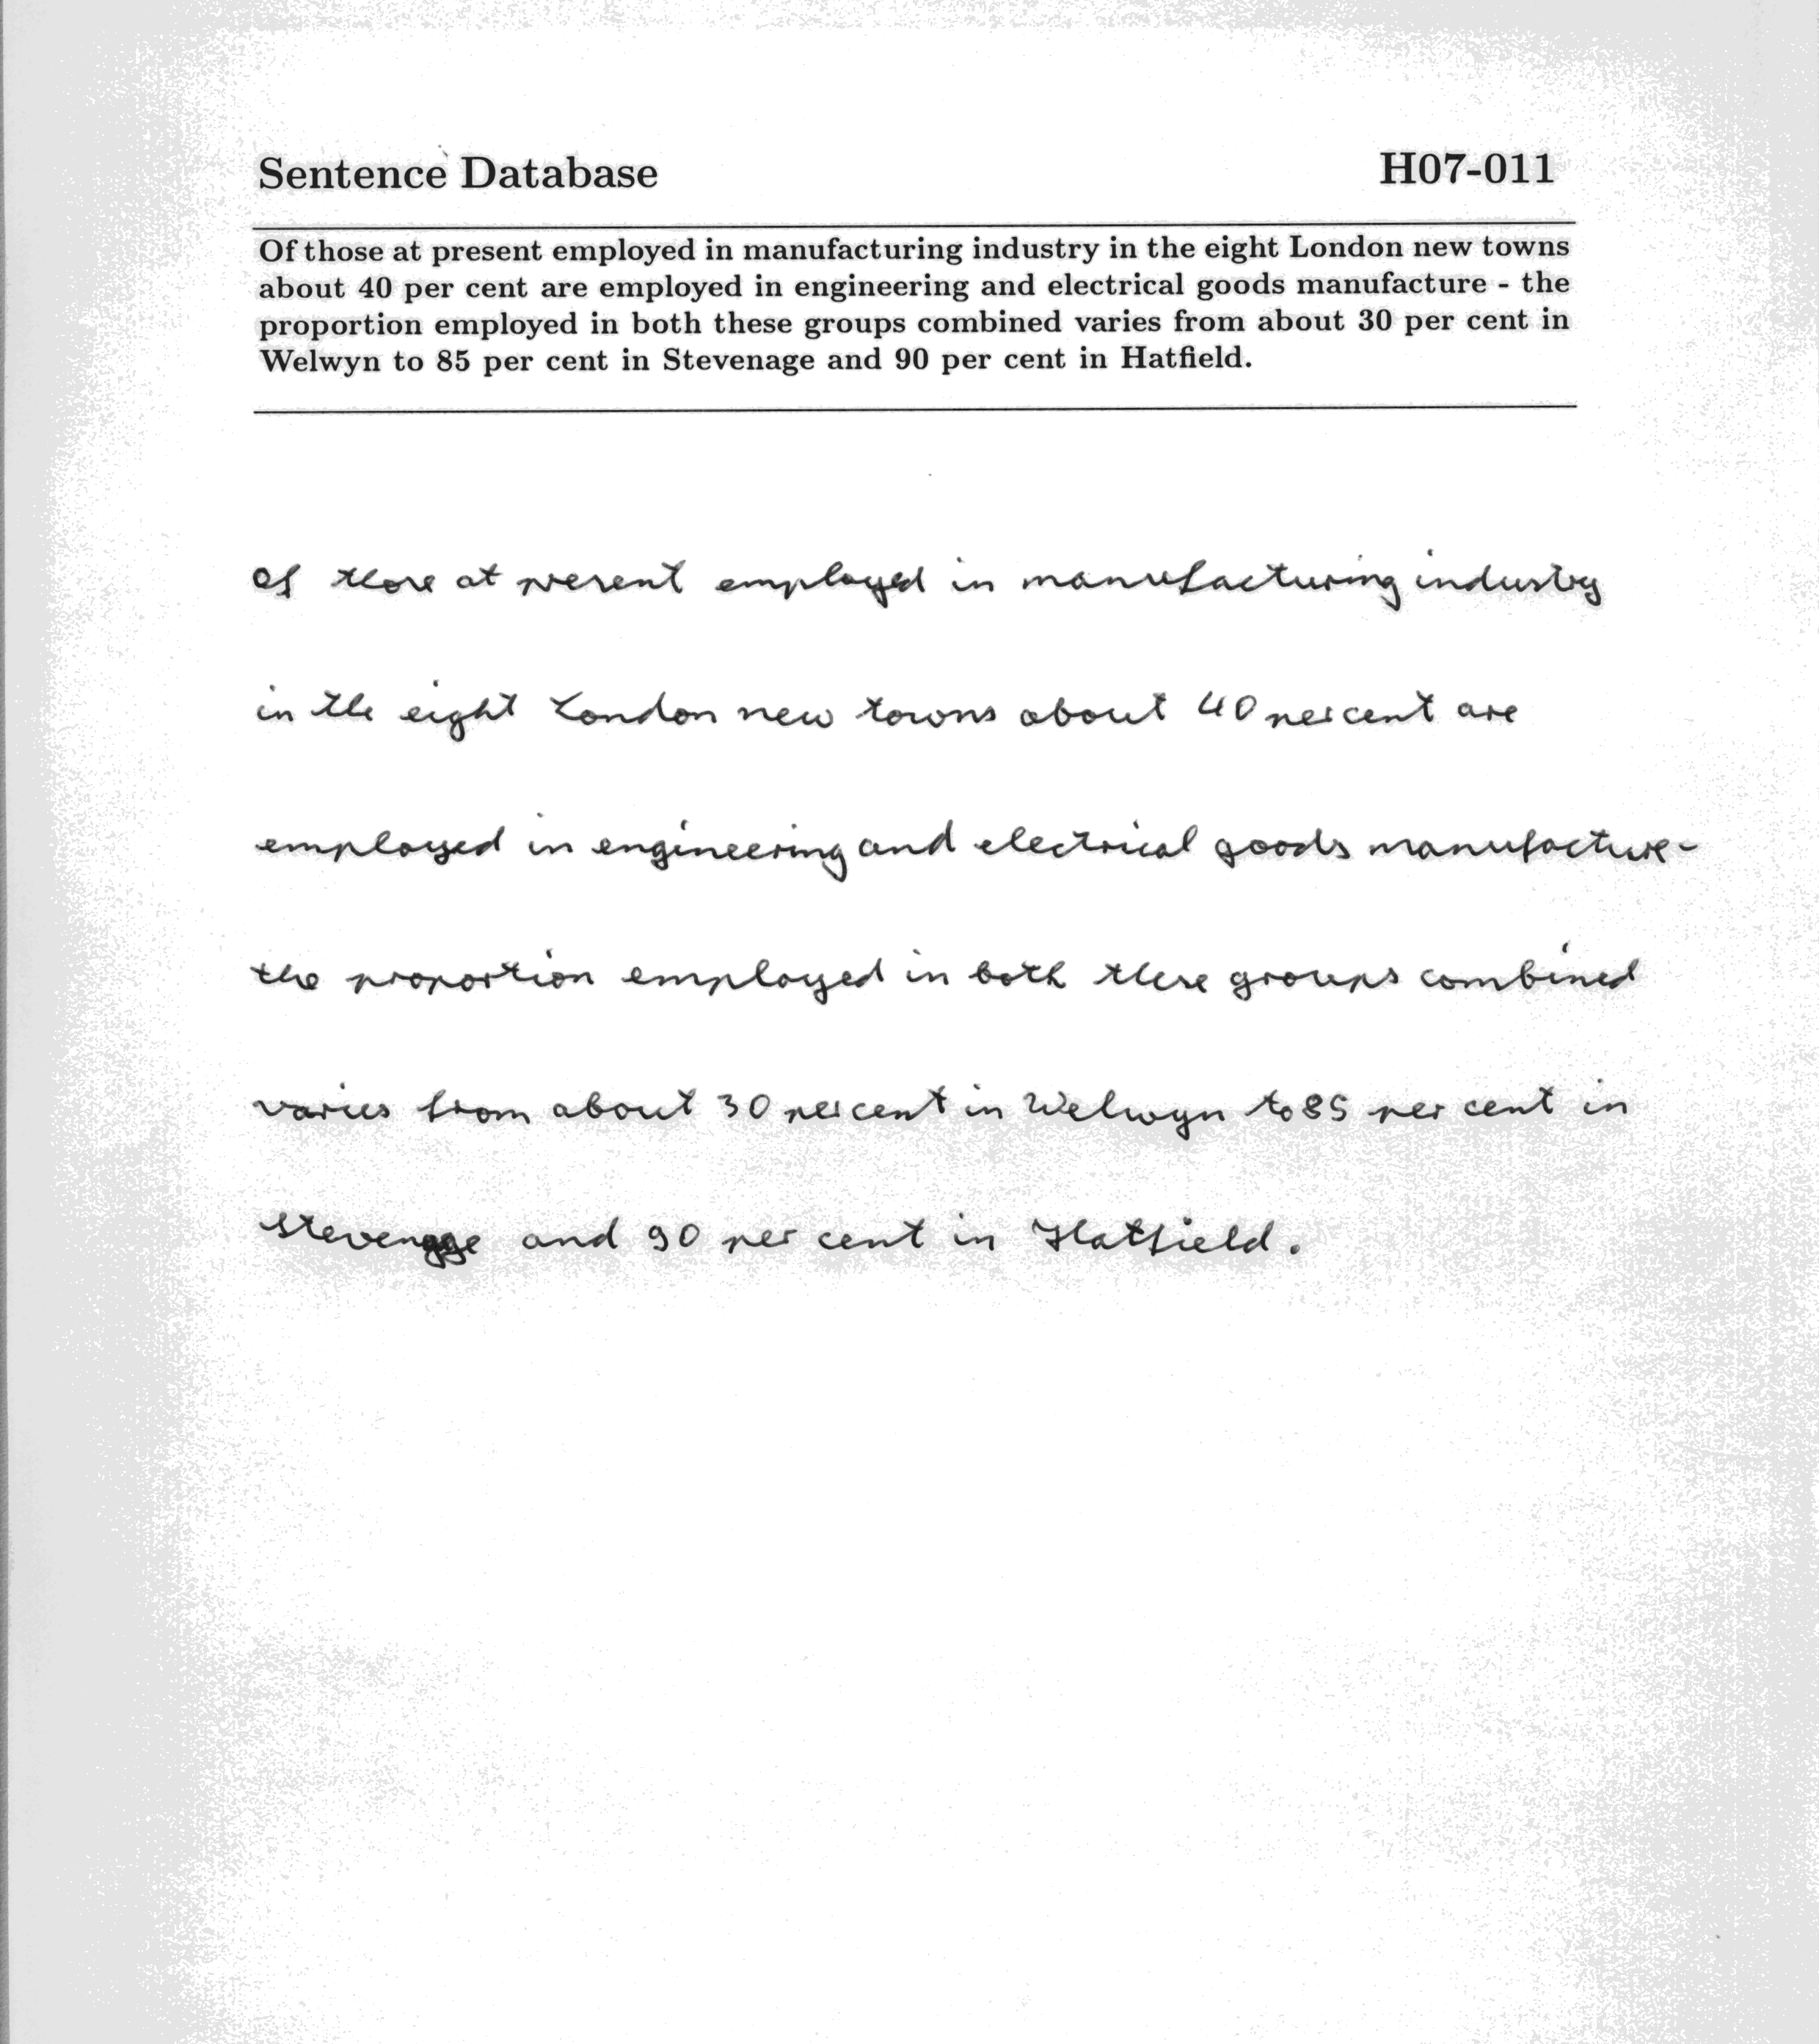 Sentence Database H07-011
Of those at present employed in manufacturing industry in the eight London new towns
about 40 per cent are employed in engineering and electrical goods manufacture - the
proportion employed in both these groups combined varies from about 30 per cent in
Welwyn to 85 per cent in Stevenage and 90 per cent in Hatfield.
Of those at present employed in manufacturing industry
in the eight London new towns about 40 per cent are
employed in engineering and electrical goods manufacture -
the proportion employed in both these groups combined
varies from about 30 per cent in Welwyn to 85 per cent in
Stevenage and 90 per cent in Hatfield.